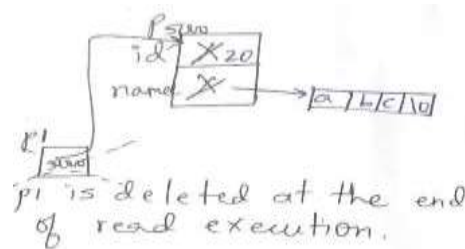 P zero
id X 20
name X
a b c \0
p1
zero
p1 is deleted at the end
of read execution.